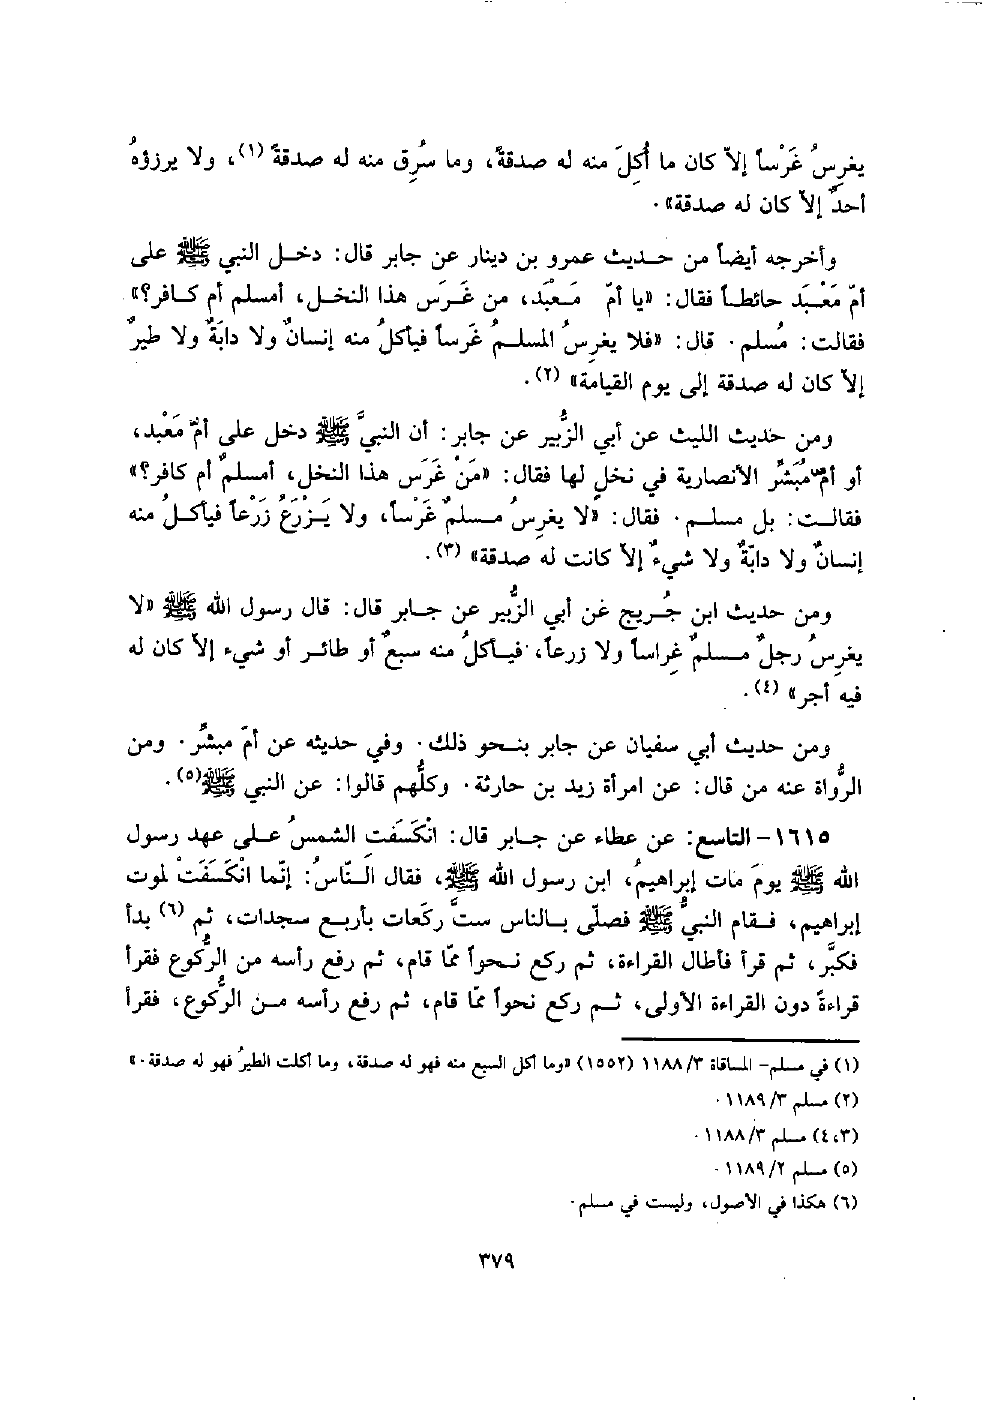 يغرسُ غَرْساً إلاّ كان ما أُكِلَ منه له صدقةً، وما سُرِق منه له صدقةً (١)، ولا يرزؤهُ
أحدٌ إلاّ كان له صدقة».
وأخرجه أيضاً من حديث عمرو بن دينار عن جابر قال: دخل النبي ﷺ على
أمّ مَعْبَد حائطاً فقال: «يا أمّ مَعْبَد، من غَرَس هذا النخل، أمسلم أم كافر؟»
فقالت: مُسلم. قال: «فلا يغرِسُ المسلمُ غَرساً فيأكلُ منه إنسانٌ ولا دابّةٌ ولا طيرٌ
إلاّ كان له صدقة إلى يوم القيامة» (٢).
ومن حديث الليث عن أبي الزُّبير عن جابر: أن النبيَّ ﷺ دخل على أمّ مَعْبد،
أو أمّ مُبَشِّر الأنصارية في نخلٍ لها فقال: «مَنْ غَرَس هذا النخل، أمسلمٌ أم كافر؟»
فقالت: بل مسلم. فقال: «لا يغرِسُ مسلمٌ غَرْساً، ولا يَزْرَعُ زَرْعاً فيأكلُ منه
إنسانٌ ولا دابّةٌ ولا شيءٌ إلاّ كانت له صدقة» (٣).
ومن حديث ابن جُريج عن أبي الزُّبير عن جابر قال: قال رسول الله ﷺ «لا
يغرِسُ رجلٌ مسلمٌ غِراساً ولا زرعاً، فيأكلُ منه سبعٌ أو طائر أو شيء إلاّ كان له
فيه أجر» (٤).
ومن حديث أبي سفيان عن جابر بنحو ذلك. وفي حديثه عن أمّ مبشِّر. ومن
الرُّواة عنه من قال: عن امرأة زيد بن حارثة. وكلُّهم قالوا: عن النبي ﷺ(٥).
١٦١٥- التاسع: عن عطاء عن جابر قال: انْكَسَفَتِ الشمسُ على عهد رسول
الله ﷺ يومَ مات إبراهيمُ، ابن رسول الله ﷺ، فقال النّاسُ: إنّما انْكَسَفَتْ لموت
إبراهيم، فقام النبيُّ ﷺ فصلّى بالناس ستَّ ركَعات بأربع سجدات، ثم (٦) بدأ
فكبَّر، ثم قرأ فأطال القراءة، ثم ركع نحواً ممّا قام، ثم رفع رأسه من الرُّكوع فقرأ
قراءةً دون القراءة الأولى، ثم ركع نحواً ممّا قام، ثم رفع رأسه من الرُّكوع، فقرأ
(١) في مسلم- المساقاة ٣/ ١١٨٨ (١٥٥٢) «وما أكل السبع منه فهو له صدقة، وما أكلت الطيرُ فهو له صدقة.»
(٢) مسلم ٣/ ١١٨٩.
(٣، ٤) مسلم ٣/ ١١٨٨.
(٥) مسلم ٢/ ١١٨٩.
(٦) هكذا في الأصول، وليست في مسلم.
٣٧٩